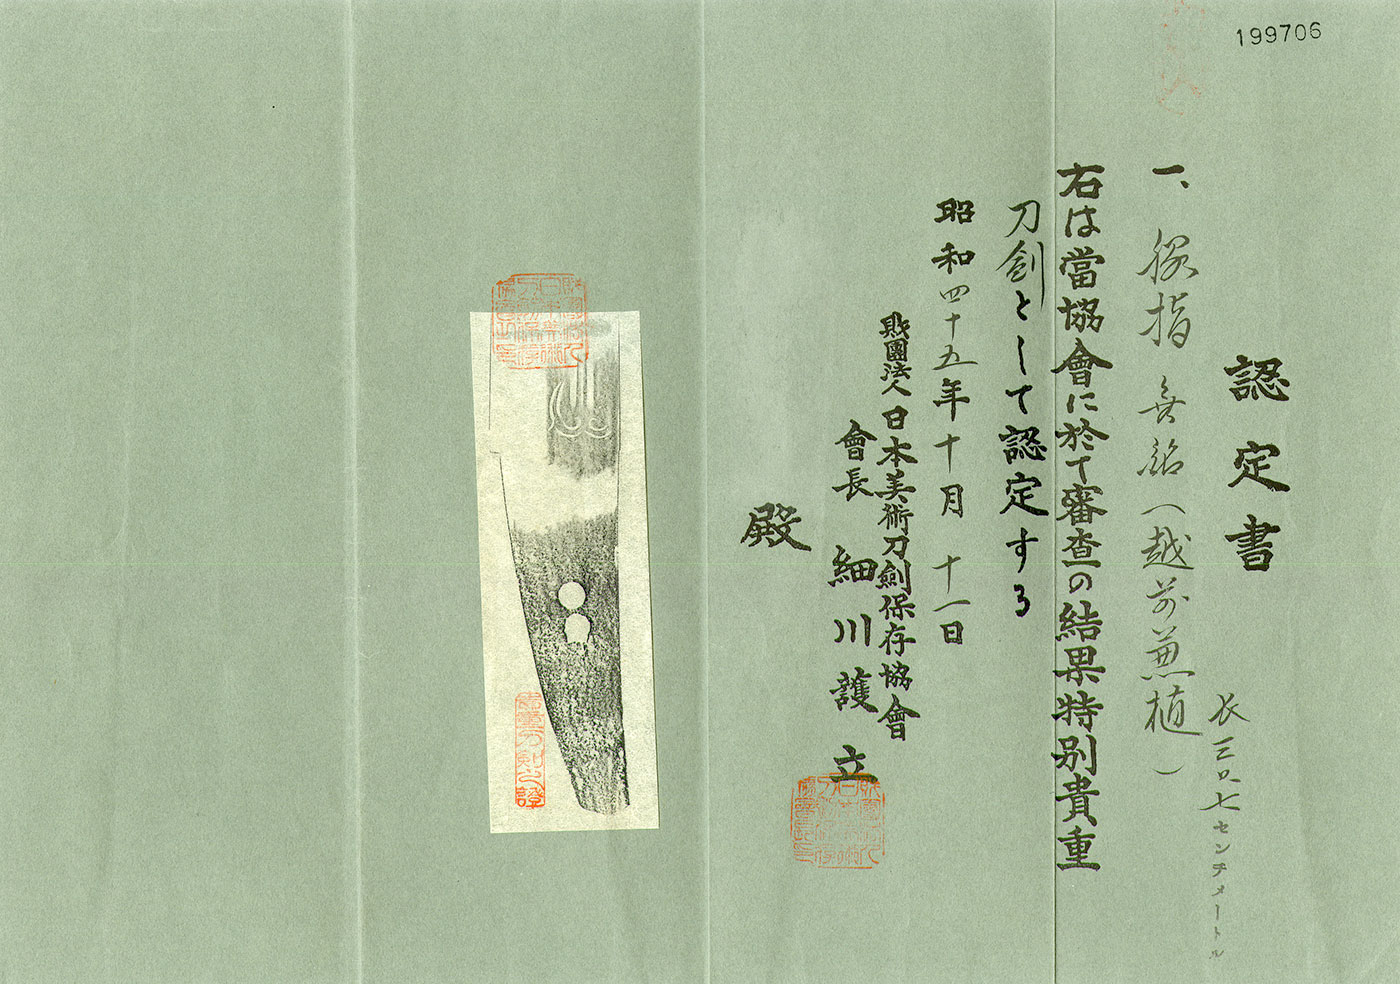 199706
認定書
一、脇指 無銘(越前兼植)
長三〇、七センチメートル
右は當協會に於て審査の結果特別貴重
刀劍として認定する
昭和四十五年十月十一日
財團法人日本美術刀劍保存協會
會長 細川護立
殿